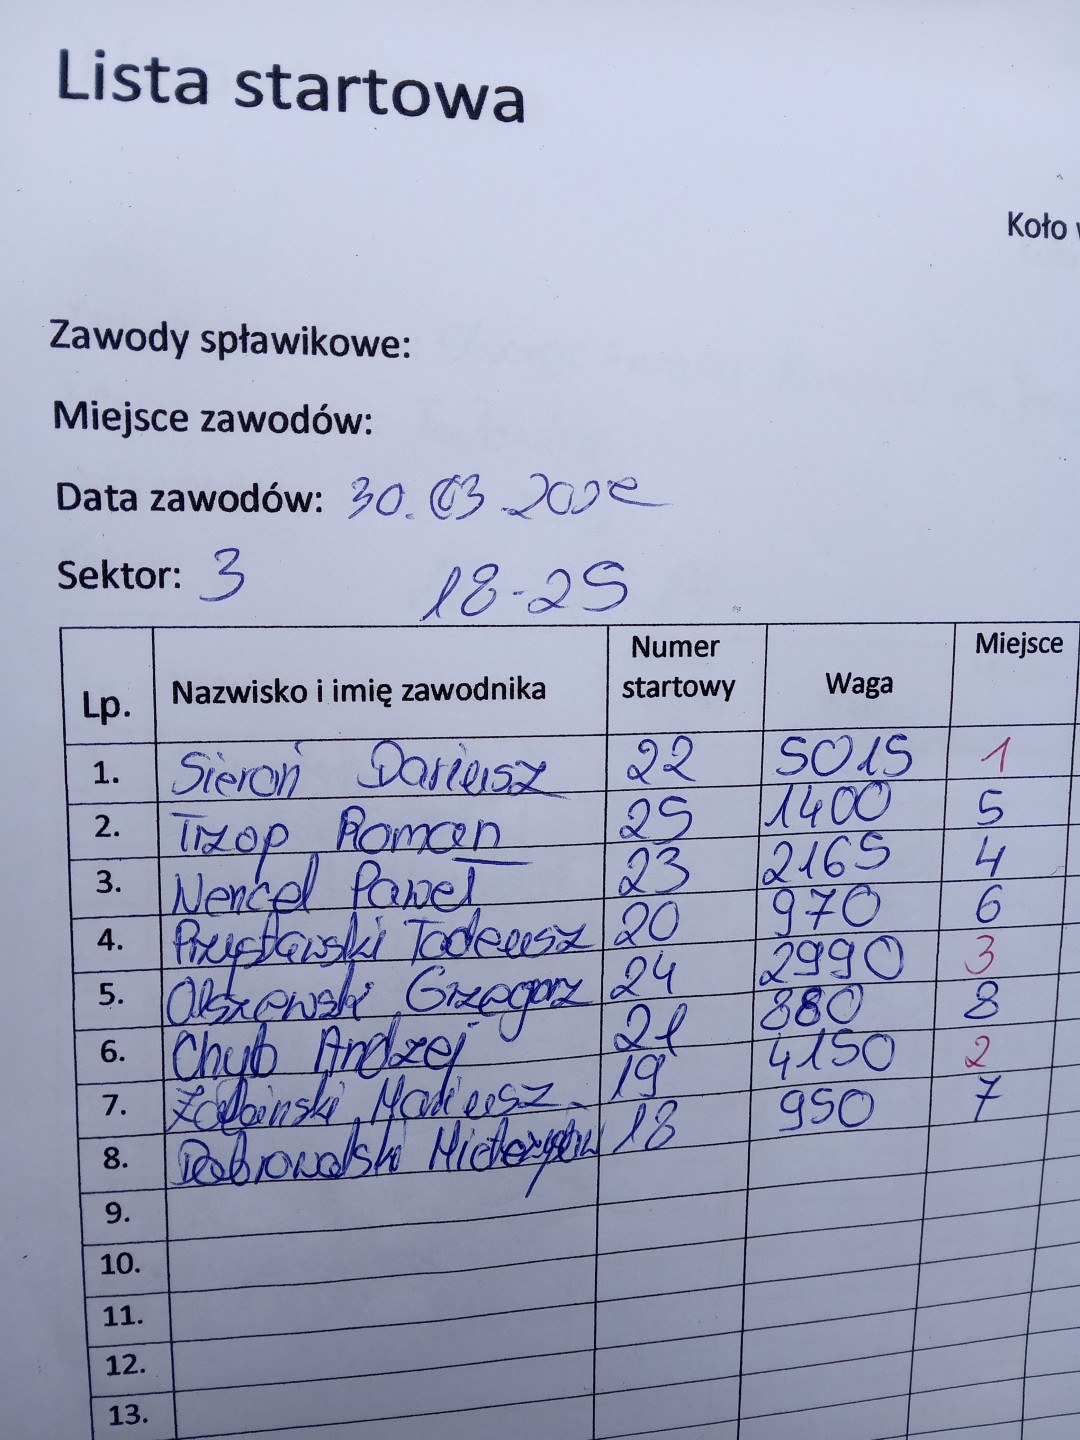 Lista startowa
Koło
Zawody spławikowe:
Miejsce zawodów:
Data zawodów: 30.03.202
Sektor: 3 18-25
Lp. Nazwisko i imię zawodnika Numer startowy Waga Miejsce
1. Sieroń Dariusz 22 5015 1
2. Trzop Roman 25 1400 5
3. Nencel Paweł 23 2165 4
4. Przystawski Tadeusz 20 970 6
5. Olszewski Grzegorz 24 2990 3
6. Chyb Andrzej 21 880 8
7. Mariusz 19 4150 2
8. Dobrowolski 18 950 7
9.
10.
11.
12.
13.